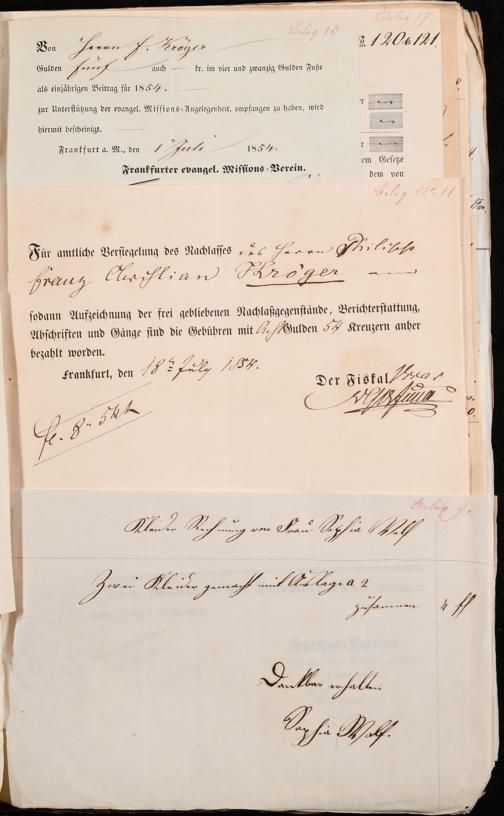 Beleg 13
Von Herrn F. Kröger
Gulden fünf auch — kr. im vier und zwanzig Gulden Fuße
als einjährigen Beitrag für 1854.
zur Unterstützung der evangel. Missions-Angelegenheit, empfangen zu haben, wird
hiermit bescheinigt.
Frankfurt a. M., den 1 Juli 1854.
Frankfurter evangel. Missions-Verein.
120 & 121
em Gesetze
dem von
Beleg No. 11
Für amtliche Versiegelung des Nachlasses des Herrn Philipp
Franz Christian Kröger
sodann Aufzeichnung der frei gebliebenen Nachlaßgegenstände, Berichterstattung,
Abschriften und Gänge sind die Gebühren mit Acht Gulden 54 Kreuzern anher
bezahlt worden.
Frankfurt, den 18ten July 1854.
Der Fiskal
fl. 8 54 k
Beleg 9.
Kleider Rechnung von Frau Sophia Wolf
Zwei Kleider gemacht mit Auslage a 2
zusammen 4 fl
Dankbar erhalten
Sophia Wolf.